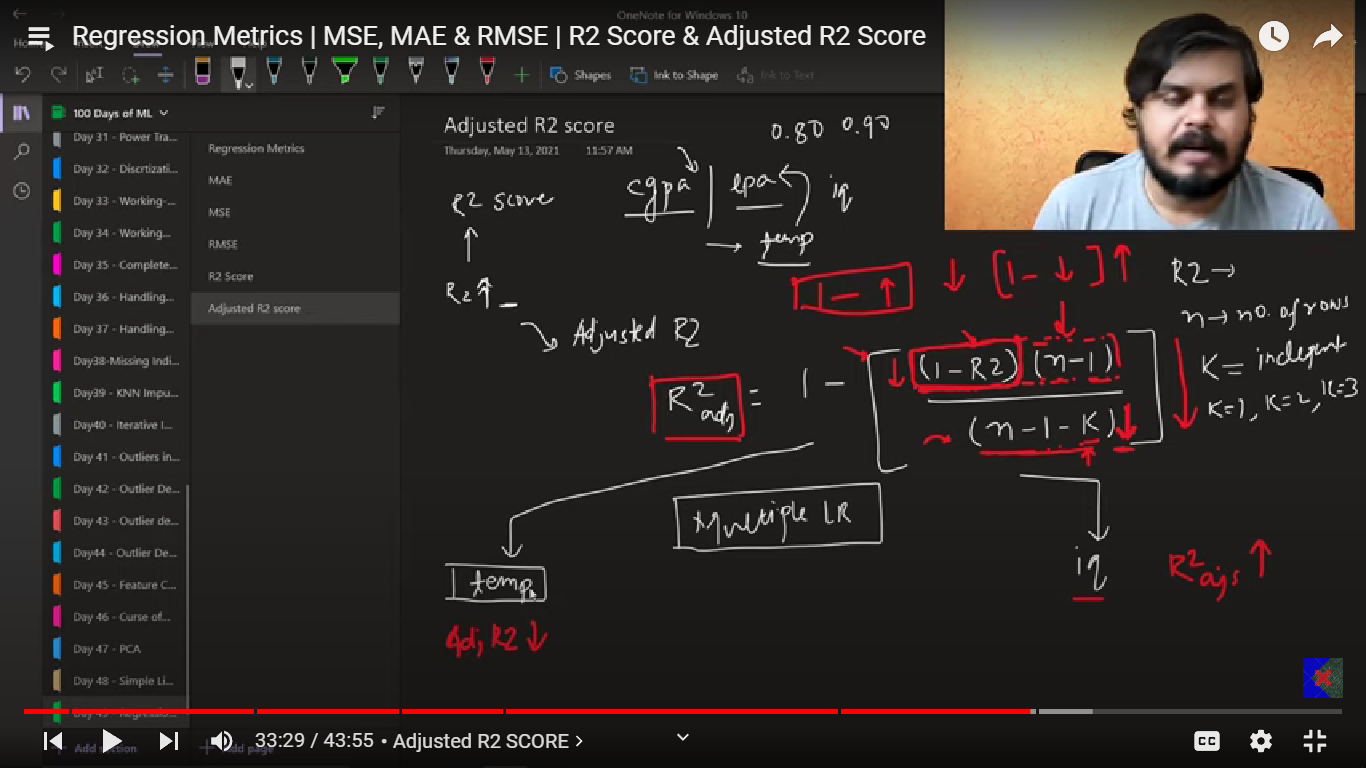 OneNote for Windows 10
Regression Metrics | MSE, MAE & RMSE | R2 Score & Adjusted R2 Score
Shapes
Ink to Shape
Ink to Text
100 Days of ML
Day 31 - Power Tra...
Day 32 - Discrtizati...
Day 33 - Working-...
Day 34 - Working...
Day 35 - Complete...
Day 36 - Handling...
Day 37 - Handling...
Day38-Missing Indi...
Day39 - KNN Impu...
Day40 - Iterative I...
Day 41 - Outliers in...
Day 42 - Outlier De...
Day 43 - Outlier de...
Day44 - Outlier De...
Day 45 - Feature C...
Day 46 - Curse of...
Day 47 - PCA
Day 48 - Simple Li...
Add section
Regression Metrics
MAE
MSE
RMSE
R2 Score
Adjusted R2 score
Add page
Adjusted R2 score
Thursday, May 13, 2021 11:57 AM
0.80 0.90
R2 score
cgpa | lpa iq
→ temp
↑
R2↑
Adjusted R2
1 - ↑
↓ [1 - ↓] ↑
R2 →
n → no. of rows
K =
K=1, K=2, K=3
R²adj = 1 - [(1-R2)(n-1) / (n-1-K)]
Multiple LR
temp
Adj R2 ↓
iq
R²ajs ↑
33:29 / 43:55 • Adjusted R2 SCORE >
CC